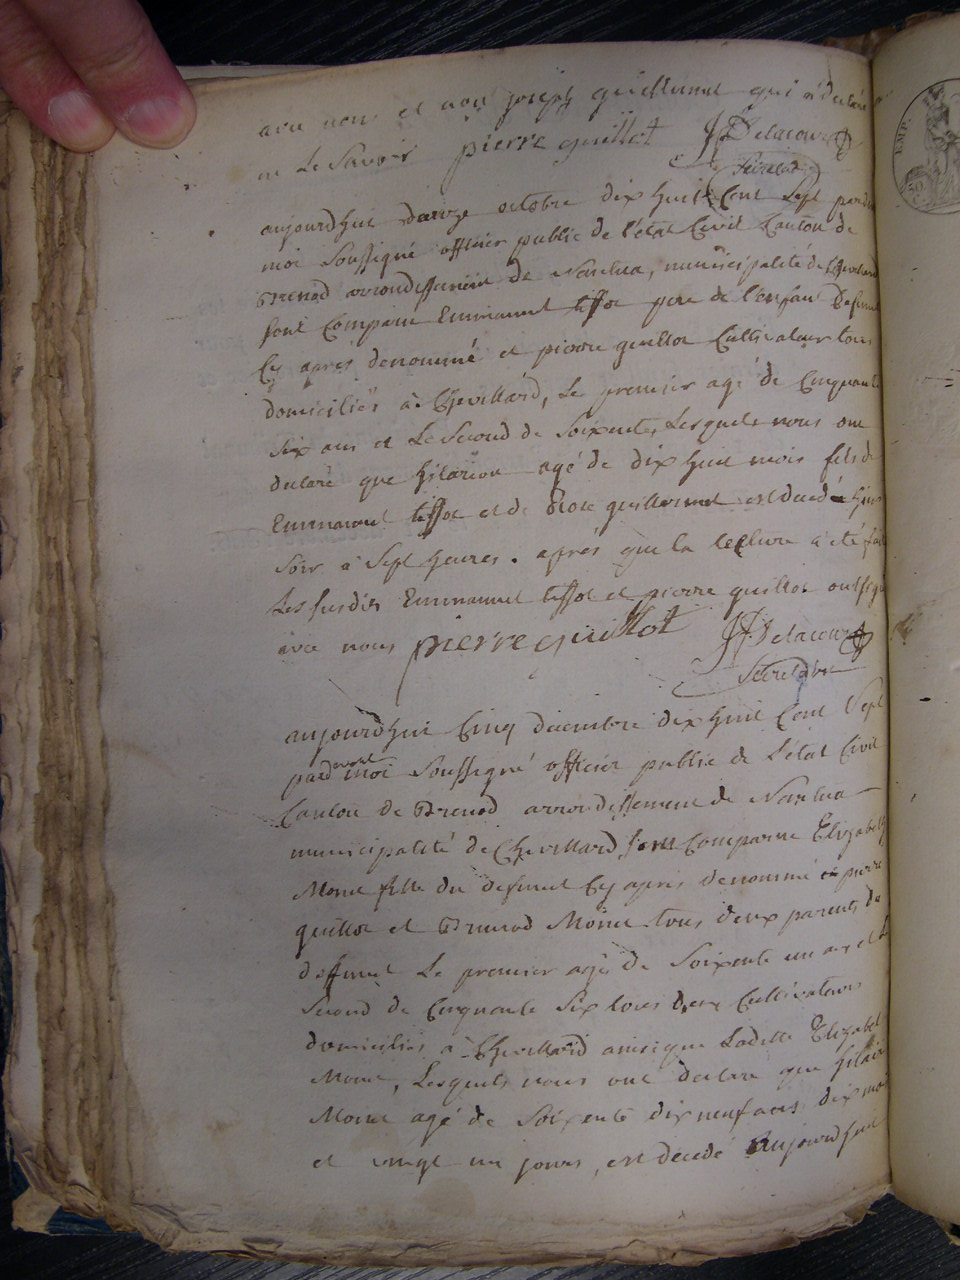 avec nous et non joseph guillermet qui a déclaré
ne Le Savoir pierre guillot JJDelacour
Secretaire
aujourdhui douze octobre dix huit Cent Sept pard
moi Soussigné officier public de l'état Civil Canton de
Brenod arrondissement de Nantua, municipalité de Chevillard
sont Comparu Emmanuel tissot pere de l'enfan Defunt
Cy apres denommé et pierre guillot Cultivateur tous
domiciliés a Chevillard, Le premier agé de Cinquante
Six ans et Le Second de Soixente, Lesquels nous ont
declaré que hilarion agé de dix huit mois fils de
Emmanuel tissot et de guillermet est decedé hier
Soir a Sept heures. aprés que la lecture a été fait
Les susdits Emmanuel tissot et pierre guillot ont signé
avec nous pierre guillot JJDelacour
Secretaire
aujourdhui Cinq decembre dix huit Cent Sept
pardevant moi Soussigné officier public de L'état Civil
Canton de Brenod arrondissement de Nantua
municipalité de Chevillard sont Comparue Elizabeth
Moine fille du defunct Cy apres denommé pierre
guillot et Moine tous deux parents du
deffunct Le premier agé de Soixente un ans et Le
Second de Cinquante Six tous deux Cultivateurs
domiciliés a Chevillard ainsi que Ladette Elizabet
Moine, Lesquels nous ont declaré que hilaire
Moine agé de Soixente dix neuf ans dix mois
et vingt un jours, est decedé aujourdhui